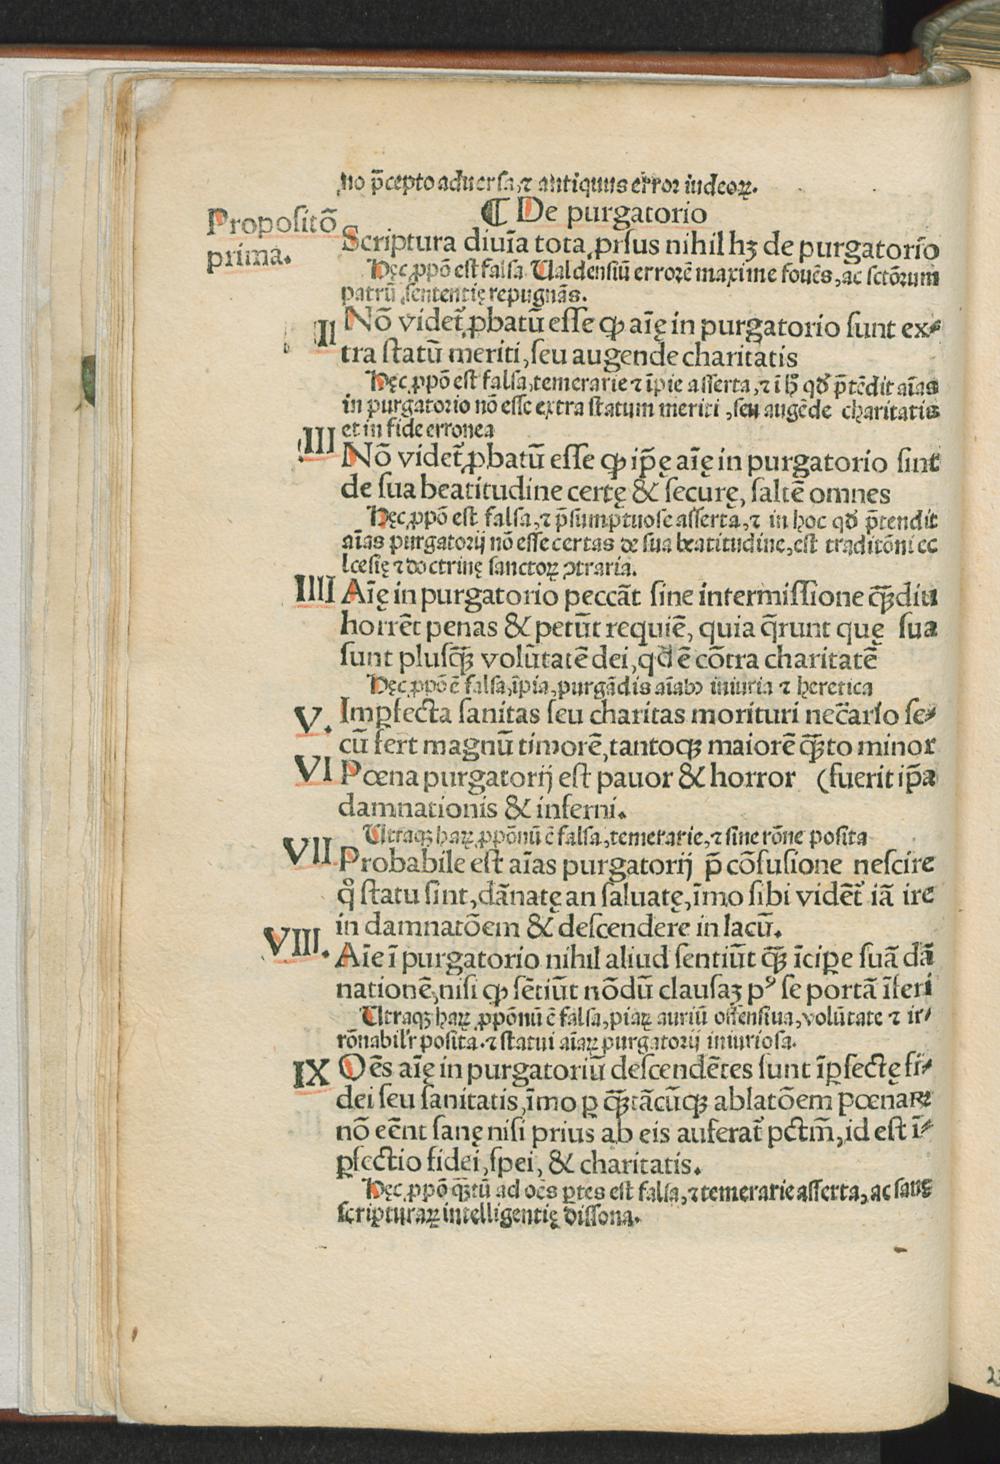 no p̄cepto aduersa, ⁊ antiquus error iudeoꝝ.
¶ De purgatorio
Propositõ
prima.
Scriptura diuĩa tota ꝓrsus nihil hꝫ de purgatorio
Hęc ꝓpõ est falsa Ualdensiũ errorẽ maxime fouẽs, ac sctõrum
patrũ sententię repugnãs.
II
Nõ videt᷑ ꝓbatũ esse ꝙ aĩę in purgatorio sunt ex⸗
tra statũ meriti, seu augende charitatis
Hęc ꝓpõ est falsa, temerarie ⁊ ĩpie asserta, ⁊ ĩ hͦ qd̃ p̃tẽdit aĩas
in purgatorio nõ esse extra statum meriti, seu augẽde charitatis
et in fide erronea
III
Nõ videt᷑ ꝓbatũ esse ꝙ ip̃ę aĩę in purgatorio sint
de sua beatitudine certę & securę, saltẽ omnes
Hęc ꝓpõ est falsa, ⁊ p̃sumptuose asserta, ⁊ in hoc qd̃ p̃tendit
aĩas purgatorij nõ esse certas de sua beatitudine, est traditõni ec
lcesię ⁊ doctrinę sanctoꝝ ꝯtraria.
IIII
Aĩę in purgatorio peccãt sine intermissione qꝫ̃diu
horrẽt penas & petũt requiẽ, quia q̃runt quę sua
sunt plusqꝫ̃ volũtatẽ dei, qd̃ ẽ cõtra charitatẽ
Hęc ꝓpõ ẽ falsa, ĩpia, purgãdis aĩabꝰ iniuria ⁊ heretica
V.
Imꝑfecta sanitas seu charitas morituri nec̃ario se⸗
cũ fert magnũ timorẽ, tantoqꝫ maiorẽ qꝫ̃to minor
VI
Pœna purgatorij est pauor & horror (fuerit ip̃a
damnationis & inferni.
Utraqꝫ haꝝ ꝓpõnũ ẽ falsa, temerarie, ⁊ sine rõne posita
VII
Probabile est aĩas purgatorij p̄ cõfusione nescire
qͦ statu sint, dãnatę an saluatę, ĩmo sibi vidẽt᷑ iã ire
in damnatõem & descendere in lacũ.
VIII.
Aĩe ĩ purgatorio nihil aliud sentiũt qꝫ̃ ĩciꝑe suã dã
nationẽ, nisi ꝙ sẽtiũt nõdũ clausaꝫ pꝰ se portã ĩferi
Utraqꝫ haꝝ ꝓpõnũ ẽ falsa, piaꝝ auriũ offensiua, volũtate ⁊ ir⸗
rõnabil'r posita. ⁊ statui aĩaꝝ purgatorij iniuriosa.
IX
Oẽs aĩę in purgatoriũ descendẽtes sunt ĩꝑfectę fi⸗
dei seu sanitatis, ĩmo ꝑ qꝫ̃tãcũqꝫ ablatõem pœnaꝝ
nõ eẽnt sanę nisi prius ab eis auferat᷑ pctm̃, id est ĩ⸗
ꝑfectio fidei, spei, & charitatis.
Hęc ꝓpõ qꝫ̃tũ ad oẽs ꝑtes est falsa, ⁊ temerarie asserta, ac sanę
scripturaꝝ intelligentię dissona.